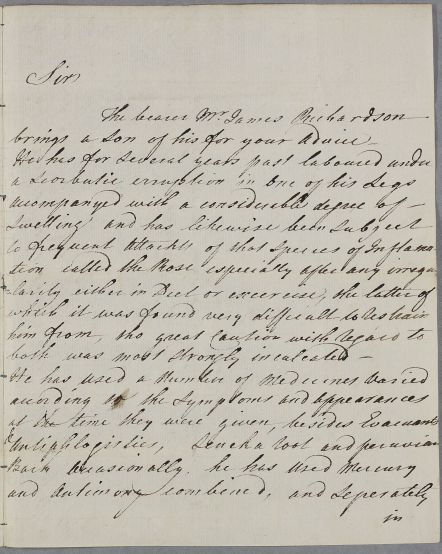 Sir
The bearer Mr. James Richardson
brings a Son of his for your Advice –
He has for Several years past laboured under
a Scorbutic erruption in one of his Legs
acompanyed with a considerable degree of –
Swelling and has likewise been Subject
to frequent Attacks of that Species of Inflama-
tion called the Rose, especially after any irregu-
-larity either in Diet or excercise, the latter of
which it was found very difficult to restrain
him from, tho great Caution with Regard to
both was most strongly inculcated –
He has used a Number of Medicines Varied
acording to the Symptoms and appearances
at the time they were given, besides Evacuants
Antiphlogistics, Seneka Root and peruvian
Bark occasionally. he has used Mercury
and Antimony combined, and Seperately
in